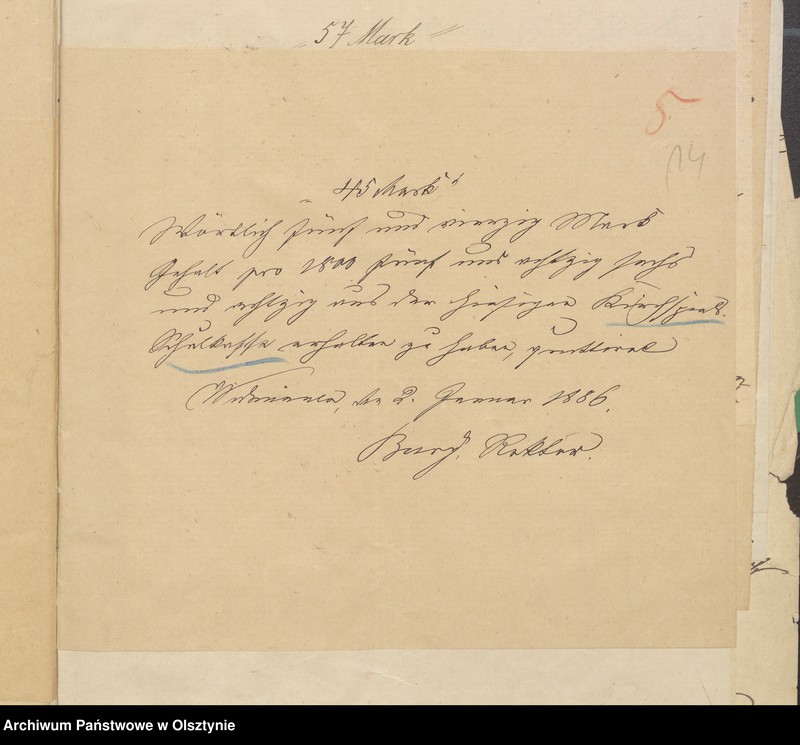 „57 Mark“
5
14
„45 Mark“
Wörtlich fünf und vierzig Mark
Gehalt pro 1800 fünf und achtzig sechs
und achtzig aus der hiesigen Kirchspiels-
Schulkasse erhalten zu haben, quittiret
Widminnen, den 2. Januar 1886.
Rektor.
Archiwum Państwowe w Olsztynie